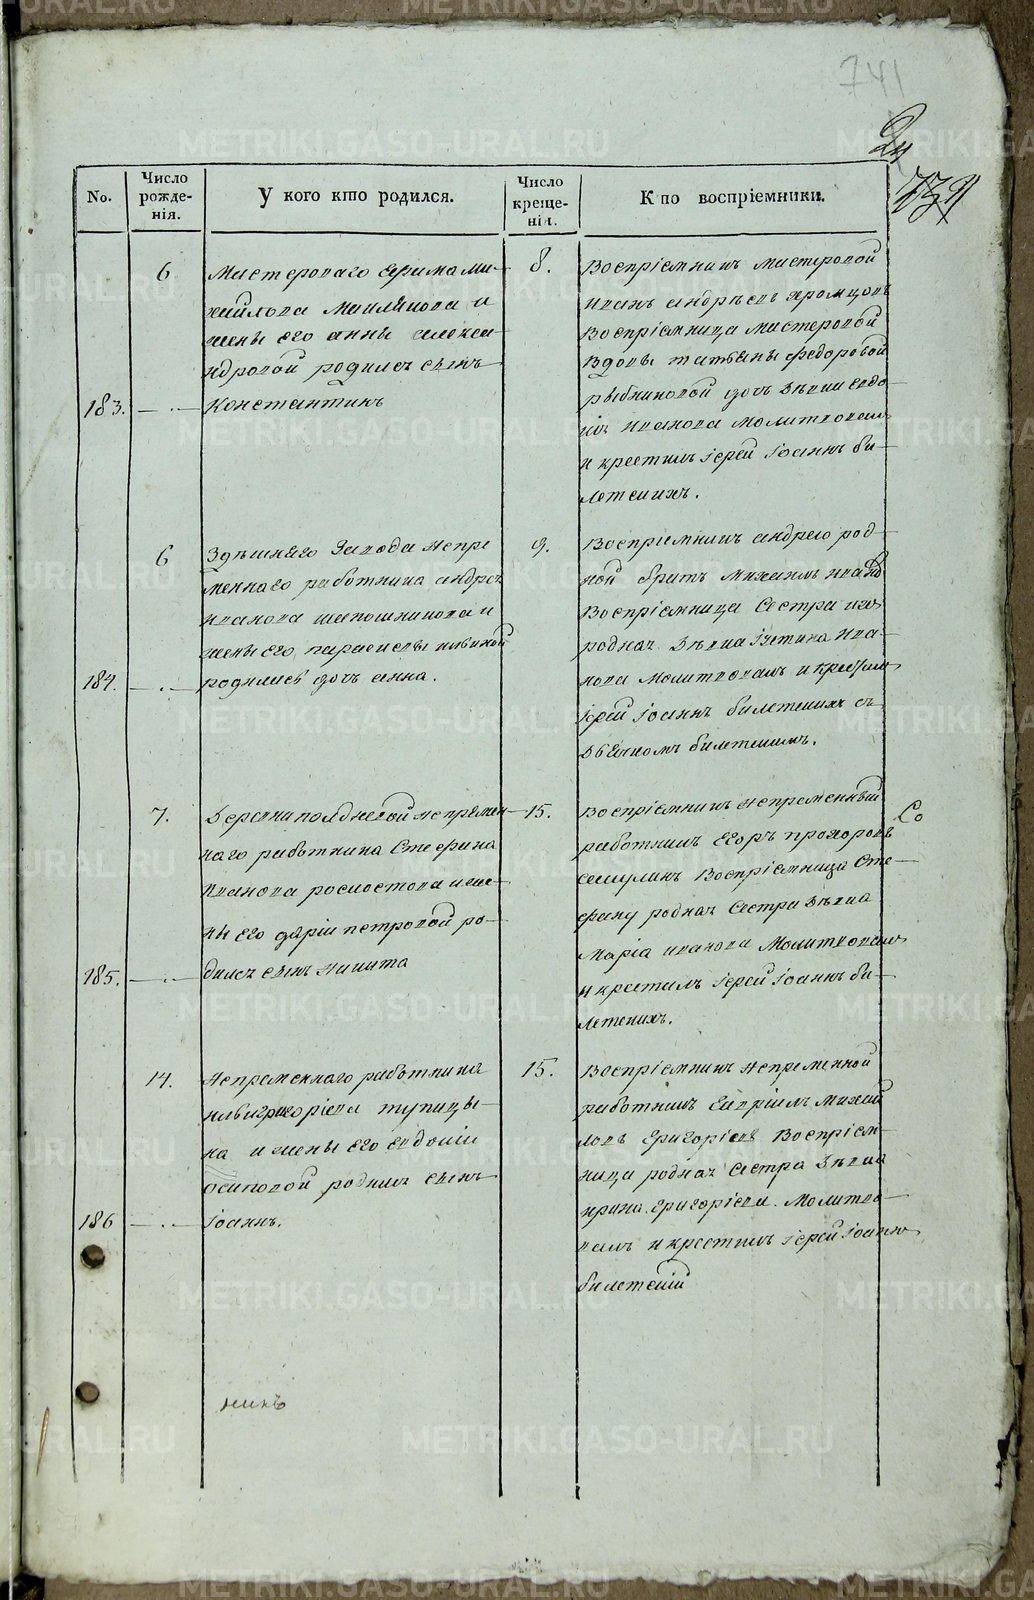 741
24
739
No.
Число рожде- нія.
У кого кто родился.
Число креще- нія.
Кто воспріемники.
183.
6
Мастероваго Ефима Ми-
хайлова
жены его анны алекса-
ндровой родился сынъ
Константинъ
8.
Воспріемникъ мастеровой
иванъ андрѣевъ хромцовъ
Воспріемница мастеровой
вдовы татьяны федоровой
рыбниковой дочь дѣвица евдо-
кія иванова молитвовалъ
и крестилъ іерей Іоаннъ би-
летскихъ.
184.
6
Здѣшняго Завода непре
меннаго работника андрея
иванова шапошникова и
жены Его парасковьи ильиной
родилась дочь анна.
9.
Воспріемникъ андрею род-
ной братъ михаилъ иванов
Воспріемница Сестра ихъ
родная дѣвица Устина ива-
нова молитвовалъ и крестилъ
іерей Іоаннъ билетскихъ съ
дьячкомъ билетскимъ.
185.
7.
Деревни полдневой непремен-
наго работника Стефана
иванова и же-
ны Его даріи петровой ро-
дился сынъ никита
15.
Воспріемникъ непременный
работникъ Егоръ прохоровъ
Воспріемница Сте-
фану родная Сестра дѣвица
марія иванова молитвовалъ
и крестилъ Іерей Іоаннъ би-
летскихъ.
Со
186
14.
непременнаго работника
ильи григоріева тупицы-
на и жены его евдокіи
осиповой родился сынъ
Іоаннъ.
15.
Воспріемникъ непременной
работникъ гавріилъ михай
ловъ григорьевъ Воспріем-
ница родная Сестра дѣвица
ирина григоріева. Молитво-
валъ и крестилъ іерей Іоаннъ
билетскій
никъ
METRIKI.GASO-URAL.RU